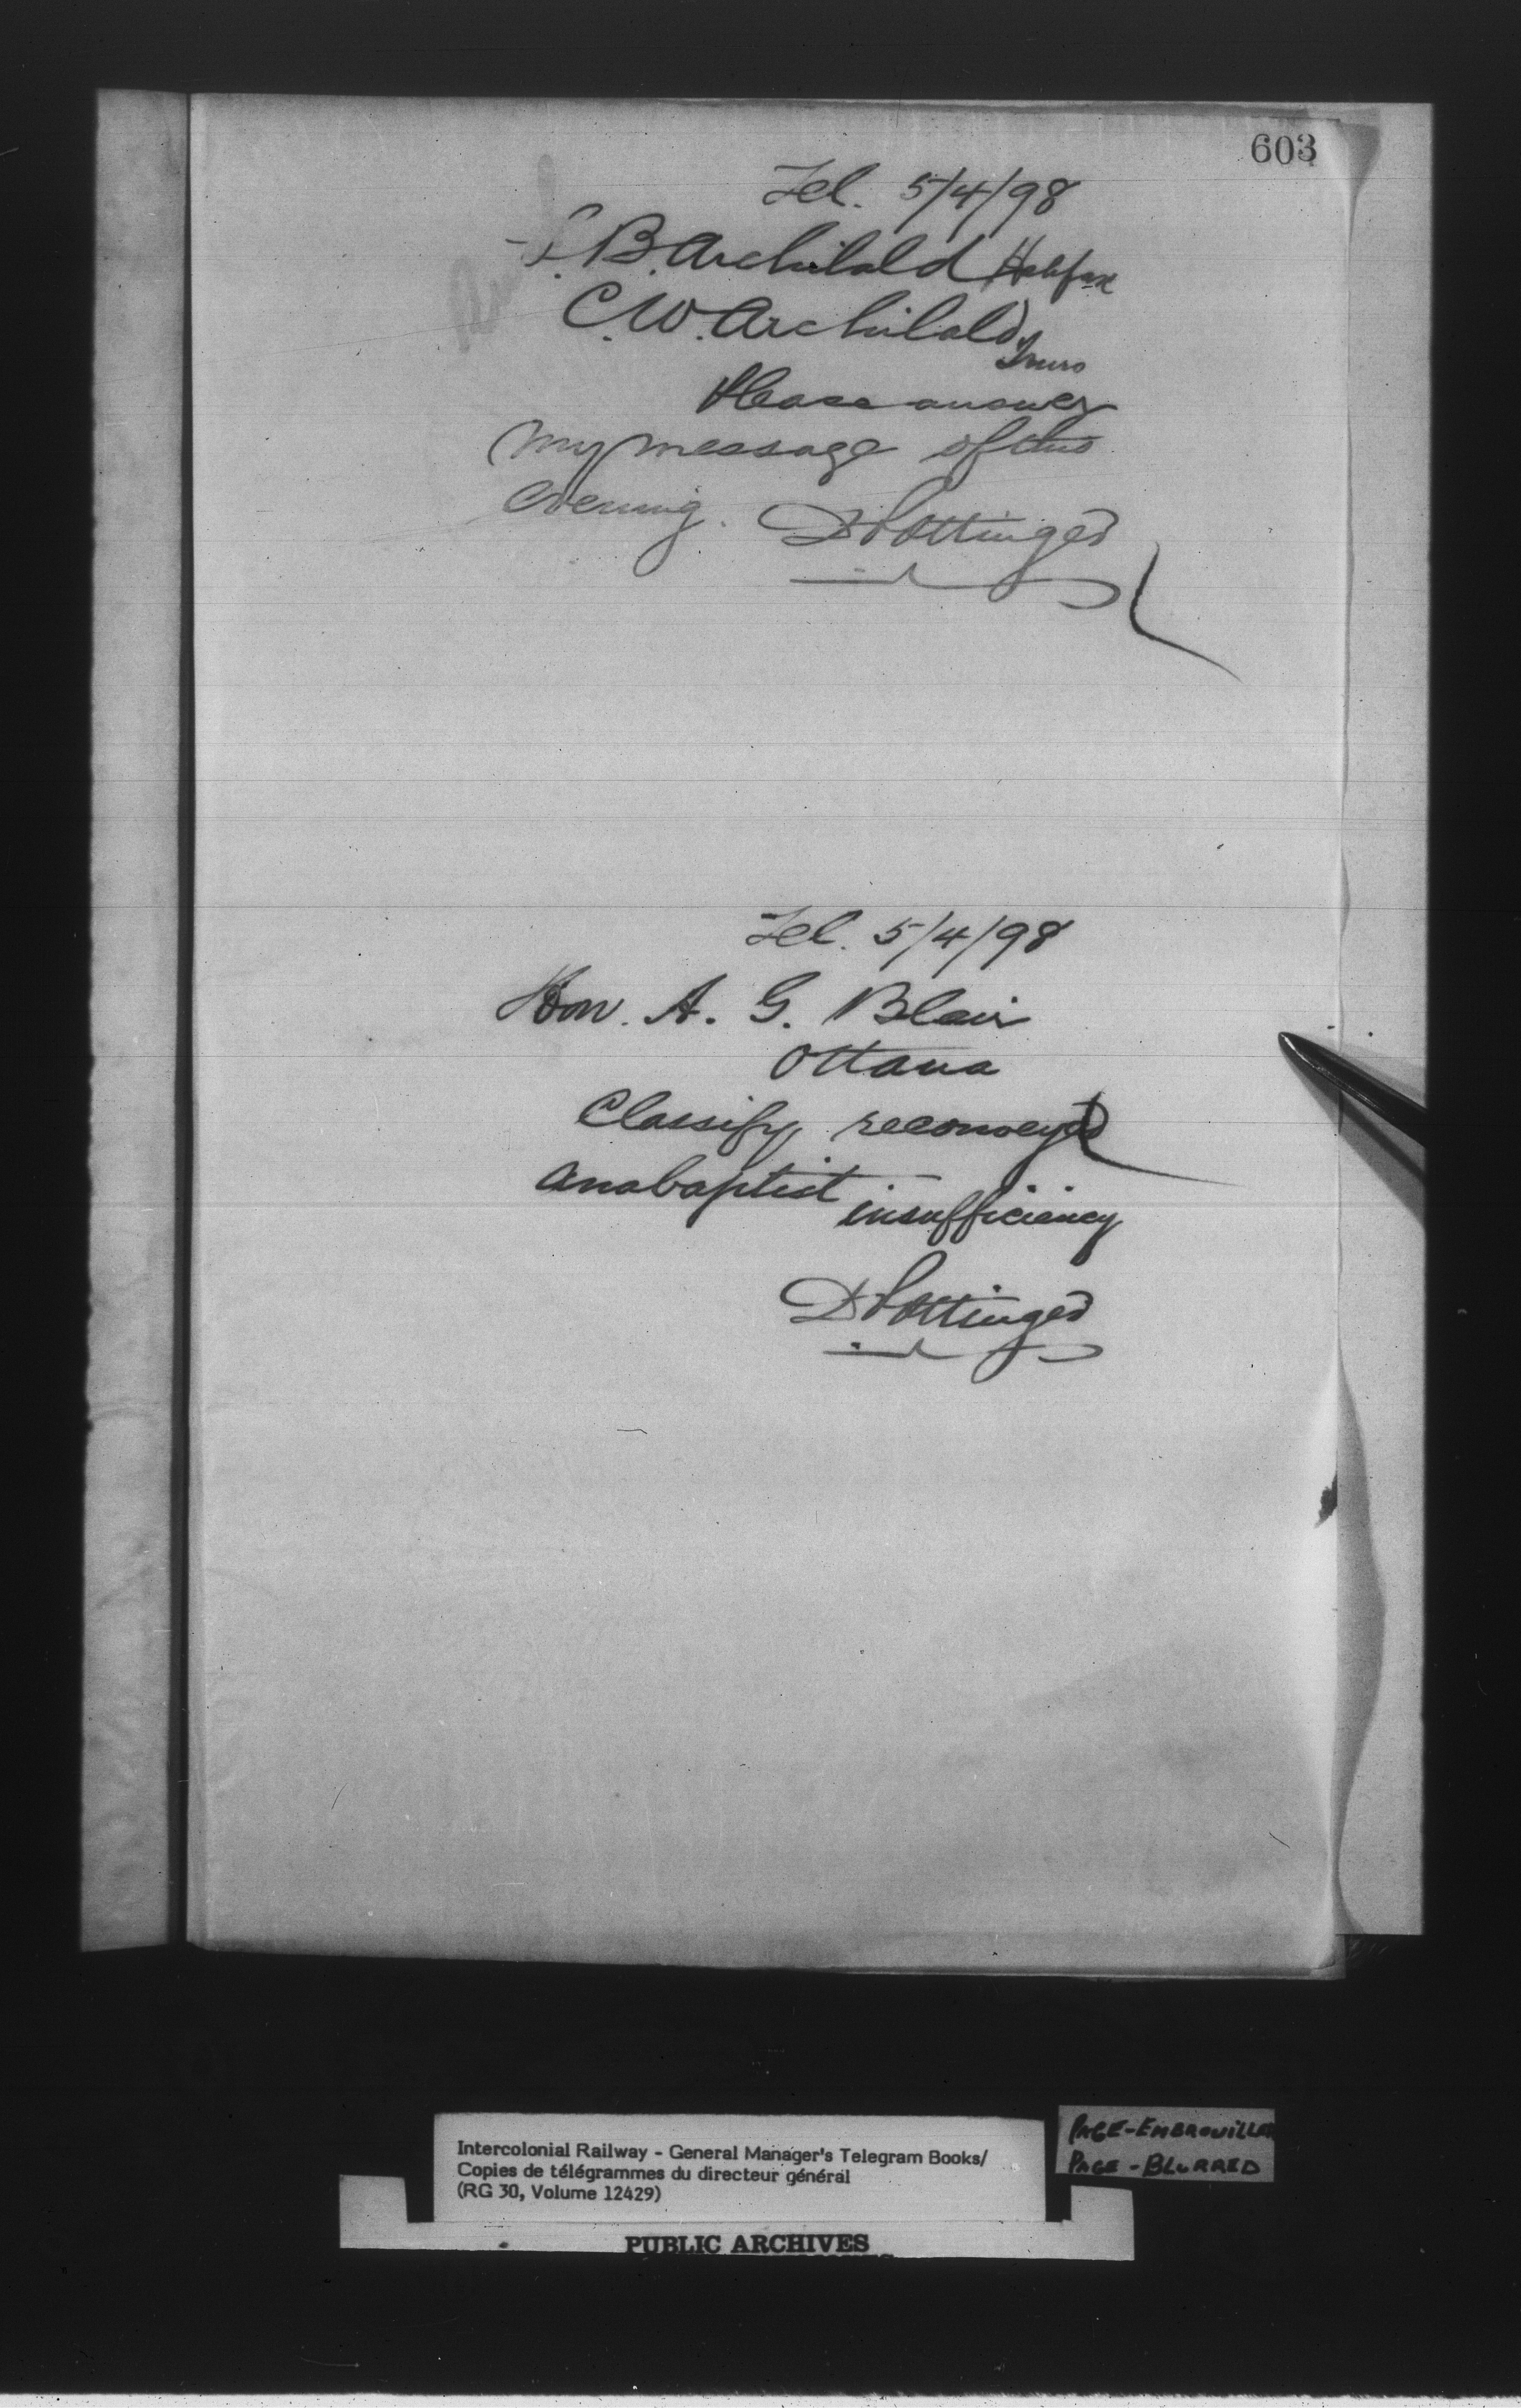 603
Tel. 5/4/98
B. Archibald Halifax
C. W. Archibald
Truro
Please answer
my message of this
evening. D Pottinger
Tel. 5/4/98
Hon. A. G. Blair
Ottawa
Classify reconveyed
anabaptist insufficiency
D Pottinger
Intercolonial Railway - General Manager's Telegram Books/
Copies de télégrammes du directeur général
(RG 30, Volume 12429)
PUBLIC ARCHIVES
PAGE-EMBROUILLÉE
PAGE-BLURRED